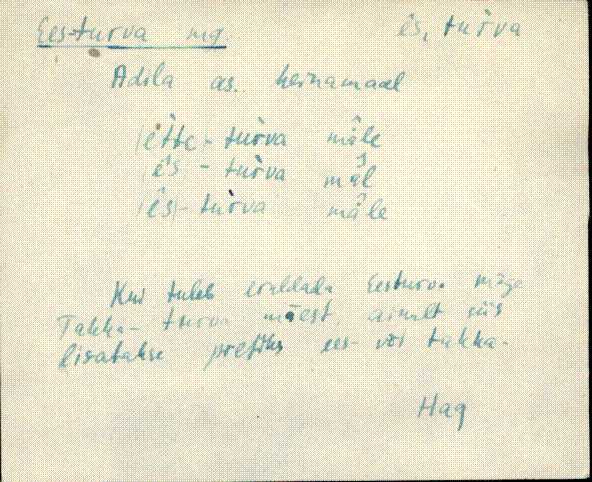 Ees-turva mg. ês, tùrva
Adila as. heinamaal
(ètte-tùrva mâle
(ês-tùrva mâl
(ês)-tùrva mâle
Kui tuleb eraldada Eesturva mäge
Takka-turva mäest, ainult siis
lisatakse prefiks ees- või takka-
Hag